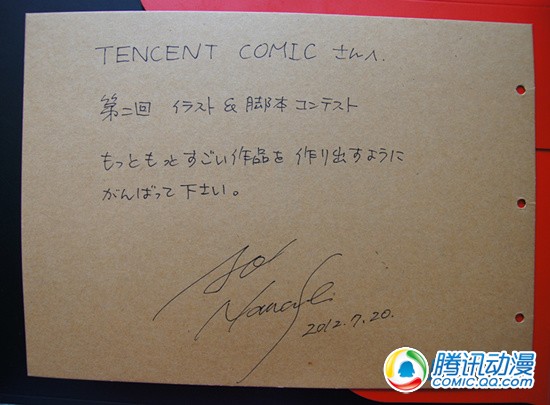 TENCENT COMIC さんへ
第二回 イラスト & 脚本コンテスト
もっともっとすごい作品を作り出すように
がんばって下さい。
2012.7.20.
腾讯动漫
COMIC.QQ.COM